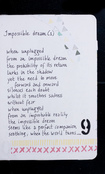 Impossible dream(s)
when unplugged
from an impossible dream
the probability of its return
lurks in the shadow
yet the need to move
forward and onward
silences each doubt
whilst it soothes scares
without fear
when unplugged
from an improbable reality
the impossible dream
seems like a perfect companion
yesterday, when the world
9